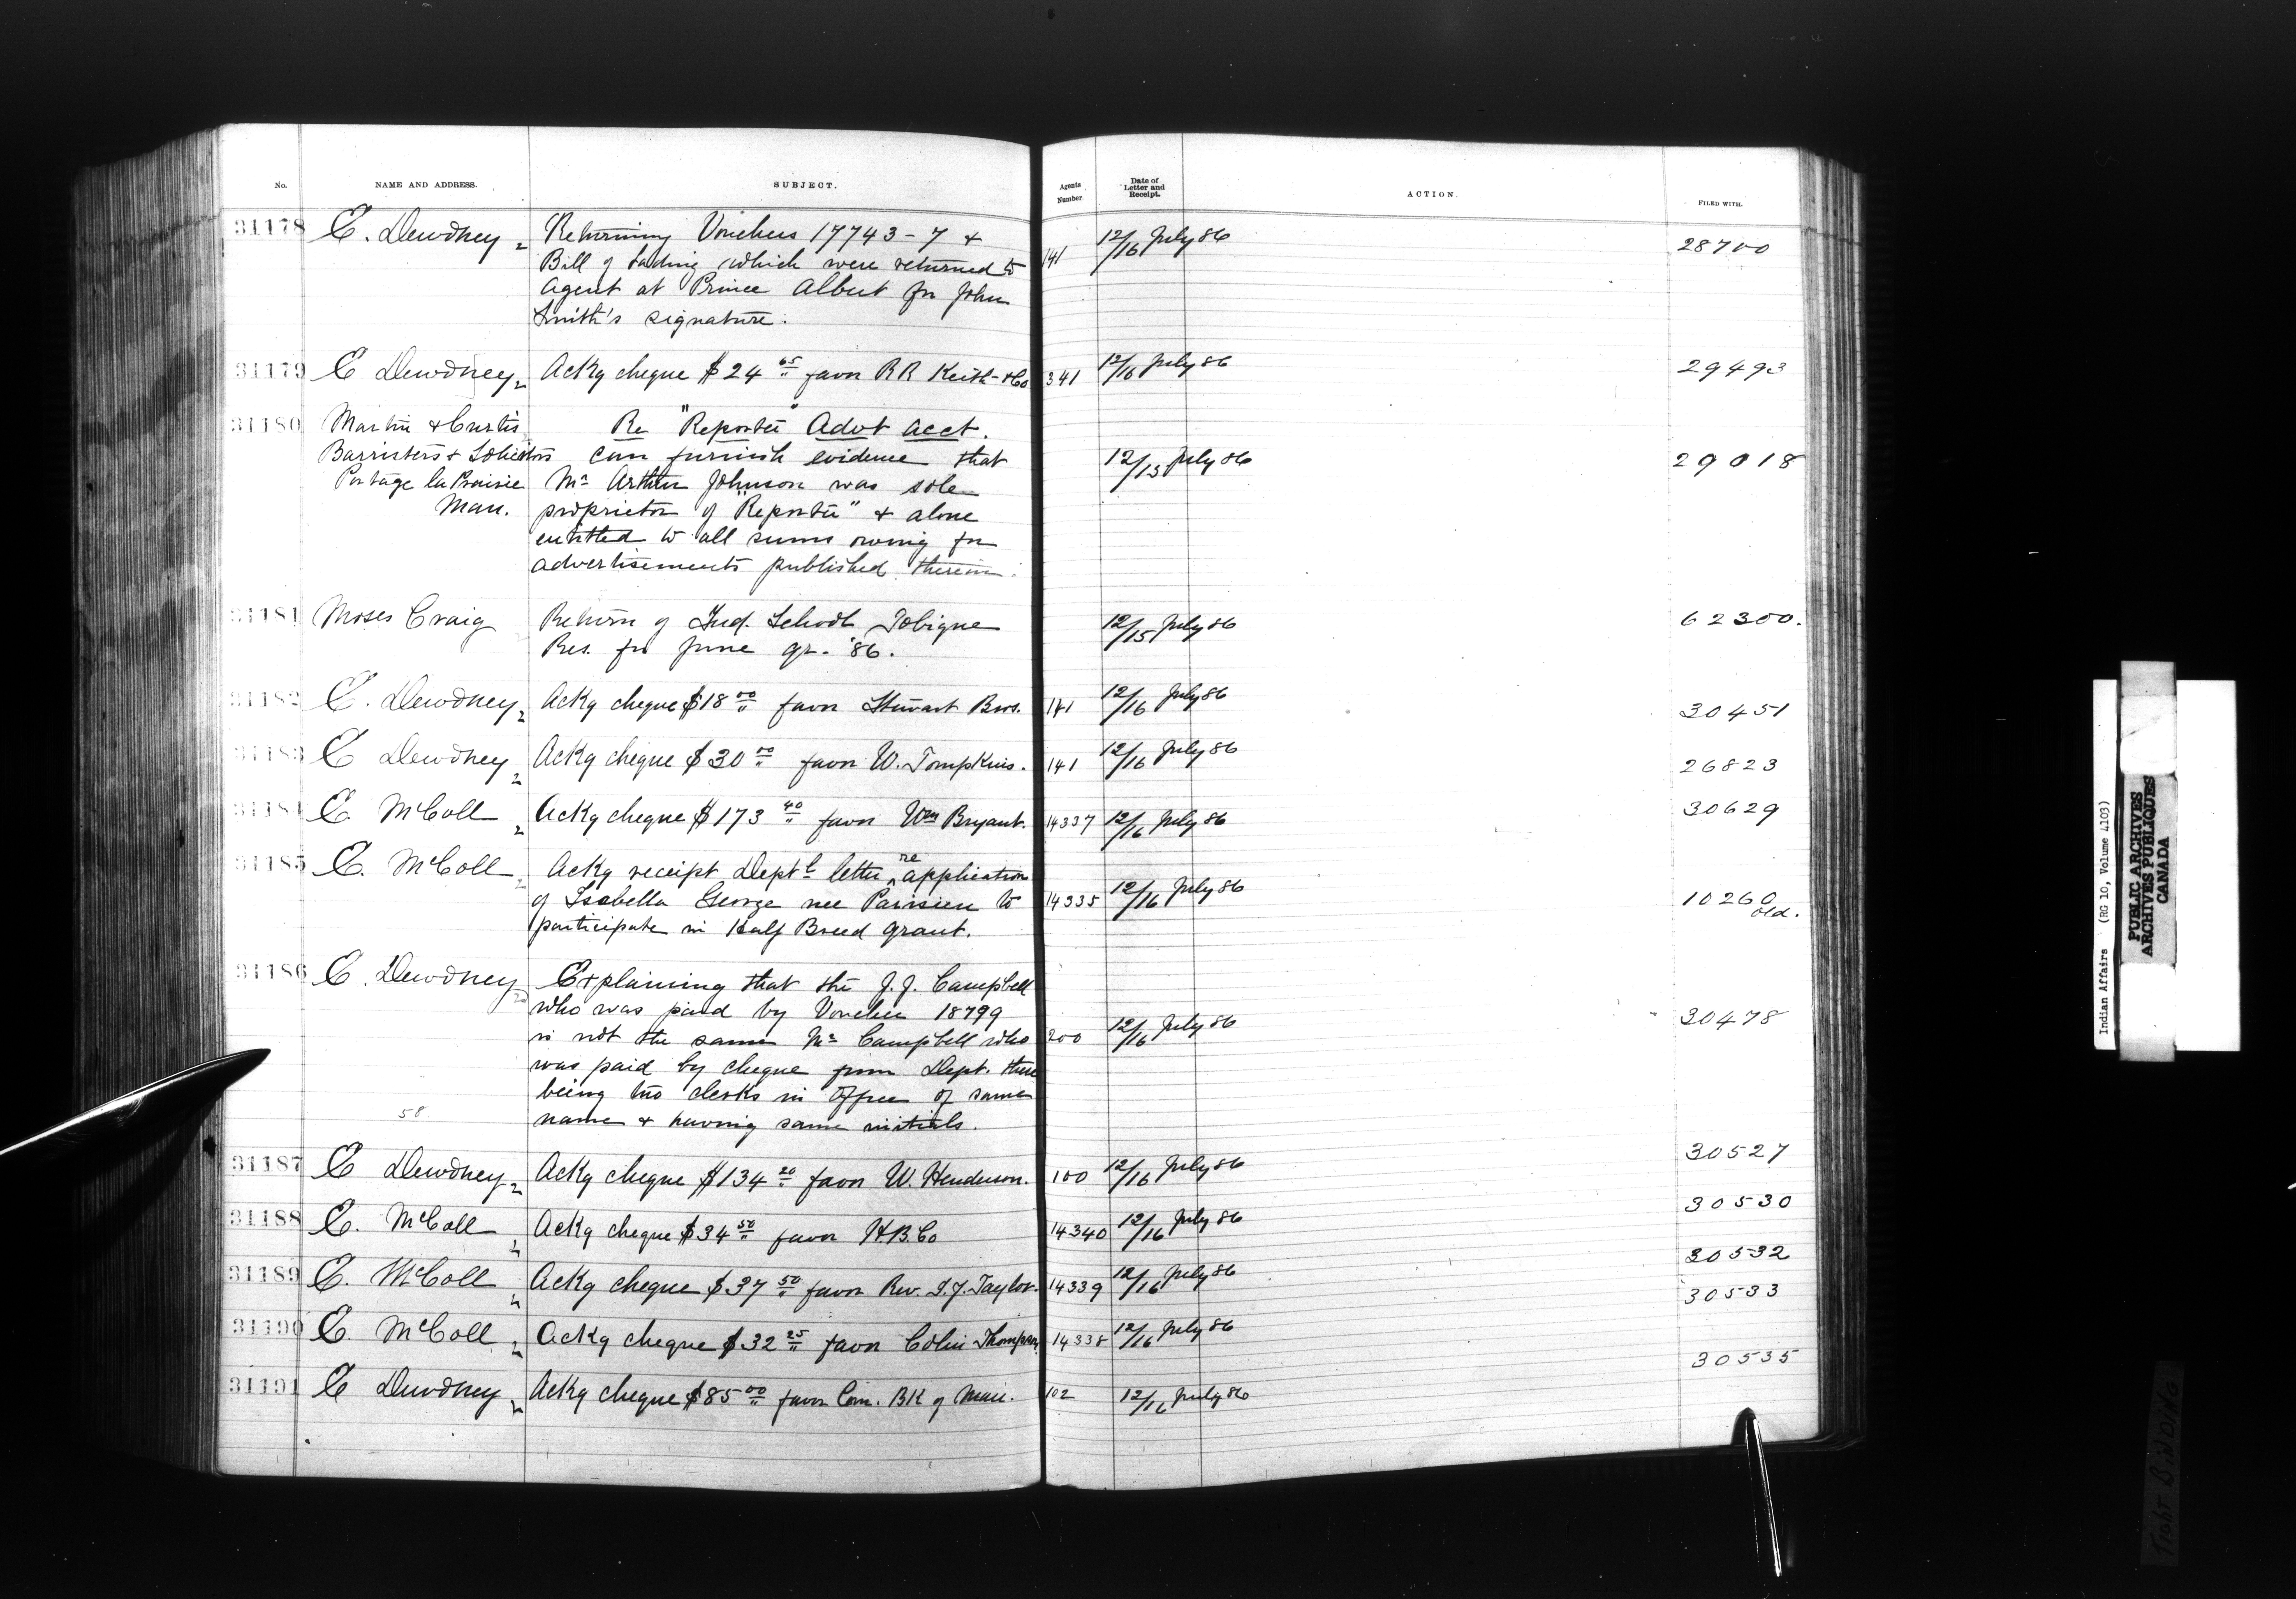 No. NAME AND ADDRESS. SUBJECT. Agents Number Date of Letter and Receipt. ACTION. FILED WITH.
31178 E. Dewdney Returning Vouchers 17743-7 & 141 12/16 July 86 28700
Bill of Lading which were returned to
Agent at Prince Albert for John
Smith's signature.
31179 E Dewdney Ackg cheque $24 65 favor RR Keith & Co 341 12/16 July 86 29493
31180 Martin & Curtis Re "Reporter" Advt acct.
Barristers & Solicitors can furnish evidence that 12/13 July 86 29018
Portage la Prairie Mr Arthur Johnson was sole
Man. proprietor of "Reporter" & alone
entitled to all sums owing for
advertisements published therein.
31181 Moses Craig Return of Ind. School Tobique 12/15 July 86 62300.
Res. for June qr. '86.
31182 E. Dewdney Ackg cheque $18 00 favor Stewart Bros. 141 12/16 July 86 30451
31183 E Dewdney Ackg cheque $30 00 favor W. Tompkins. 141 12/16 July 86 26823
31184 E. McColl Ackg cheque $173 40 favor Wm Bryant. 14337 12/16 July 86 30629
31185 E. McColl Ackg receipt Deptl letter re application
of Isabella George nee Parisien to 14335 12/16 July 86 10260 old.
participate in Half Breed grant.
31186 E. Dewdney Explaining that the J.J. Campbell
who was paid by Voucher 18799
is not the same Mr Campbell who 200 12/16 July 86 30478
was paid by cheque from Dept. there
being two clerks in Office of same
58 name & having same initials.
31187 E Dewdney Ackg cheque $134 20 favor W. Henderson. 100 12/16 July 86 30527
31188 E. McColl Ackg cheque $34 50 favor H.B.Co 14340 12/16 July 86 30530
31189 E. McColl Ackg cheque $37 50 favor Rev. J.J. Taylor. 14339 12/16 July 86 30532
31190 E. McColl Ackg cheque $32 25 favor Colin Thompson 14338 12/16 July 86 30533
31191 E Dewdney Ackg cheque $85 00 favor Com. Bk of Man. 102 12/16 July 86 30535
Indian Affairs (RG 10, Volume 4103)
PUBLIC ARCHIVES
ARCHIVES PUBLIQUES
CANADA
TIGHT BINDING